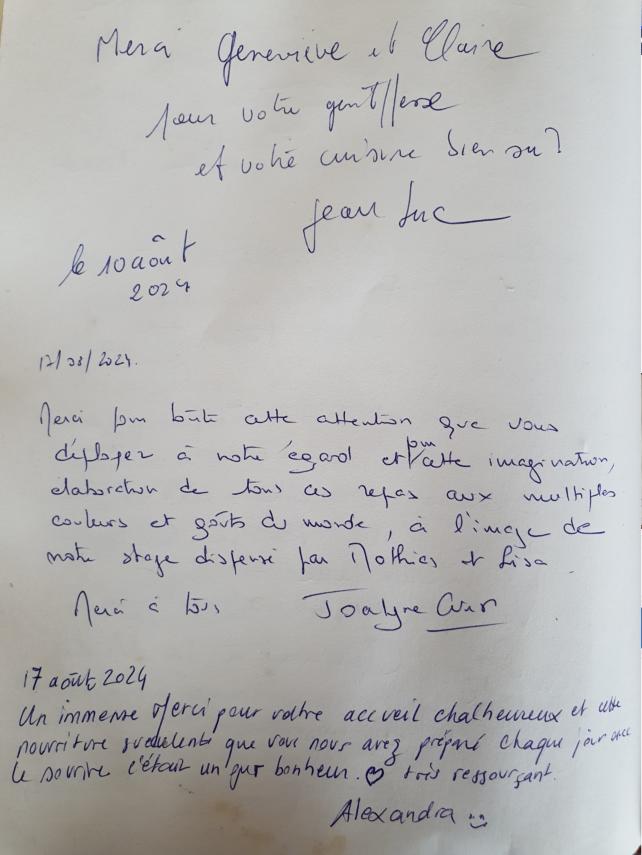 Merci Geneviève et Claire
pour votre gentillesse
et votre cuisine bien sur
Jean Luc
le 10 août
2024
17/08/2024.
Merci pour toute cette attention que vous
déployez à notre égard et pour cette imagination,
elaboration de tous ces repas aux multiples
couleurs et goûts du monde, à l'image de
notre stage dispensé par Mathias et Lisa
Merci à tous
17 août 2024
Un immense Merci pour votre accueil chalheureux et cette
nourriture succulente que vous nous avez préparé chaque jour avec
le sourire c'était un pur bonheur. ♡ très ressourçant.
Alexandra